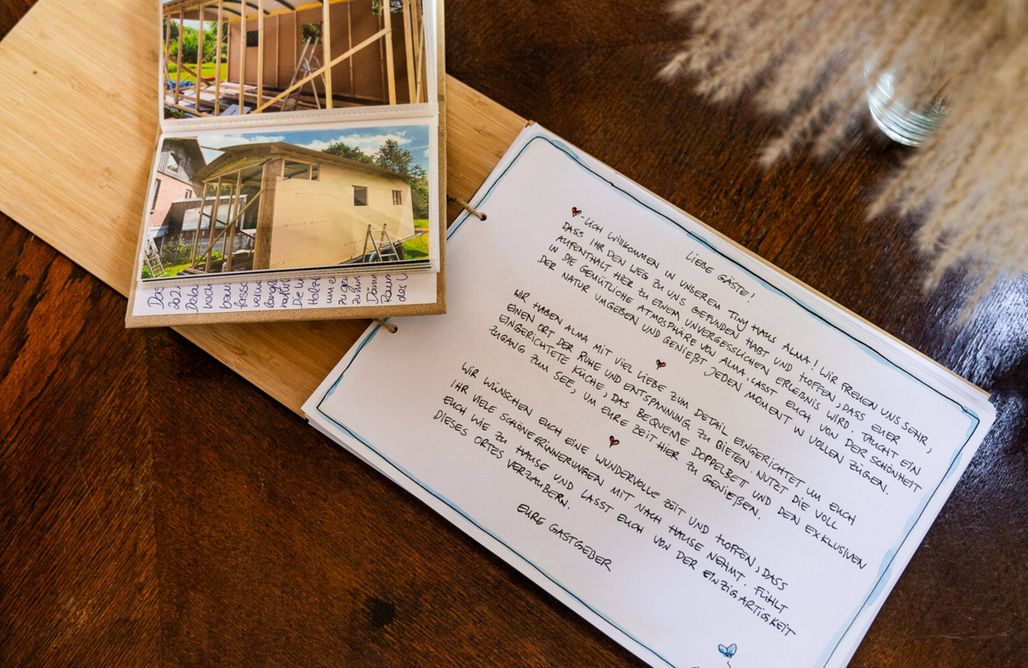 LIEBE GÄSTE!
-LICH WILLKOMMEN IN UNSEREM TINY HAUS ALMA! WIR FREUEN UNS SEHR,
DASS IHR DEN WEG ZU UNS GEFUNDEN HABT UND HOFFEN, DASS EUER
AUFENTHALT HIER ZU EINEM UNVERGESSLICHEN ERLEBNIS WIRD. TAUCHT EIN
IN DIE GEMÜTLICHE ATMOSPHÄRE VON ALMA, LASST EUCH VON DER SCHÖNHEIT
DER NATUR UMGEBEN UND GENIEßT JEDEN MOMENT IN VOLLEN ZÜGEN.
WIR HABEN ALMA MIT VIEL LIEBE ZUM DETAIL EINGERICHTET UM EUCH
EINEN ORT DER RUHE UND ENTSPANNUNG ZU BIETEN. NUTZT DIE VOLL
EINGERICHTETE KÜCHE, DAS BEQUEME DOPPELBETT UND DEN EXKLUSIVEN
ZUGANG ZUM SEE, UM EURE ZEIT HIER ZU GENIEßEN.
WIR WÜNSCHEN EUCH EINE WUNDERVOLLE ZEIT UND HOFFEN, DASS
IHR VIELE SCHÖNE ERINNERUNGEN MIT NACH HAUSE NEHMT. FÜHLT
EUCH WIE ZU HAUSE UND LASST EUCH VON DER EINZIGARTIGKEIT
DIESES ORTES VERZAUBERN.
EURE GASTGEBER